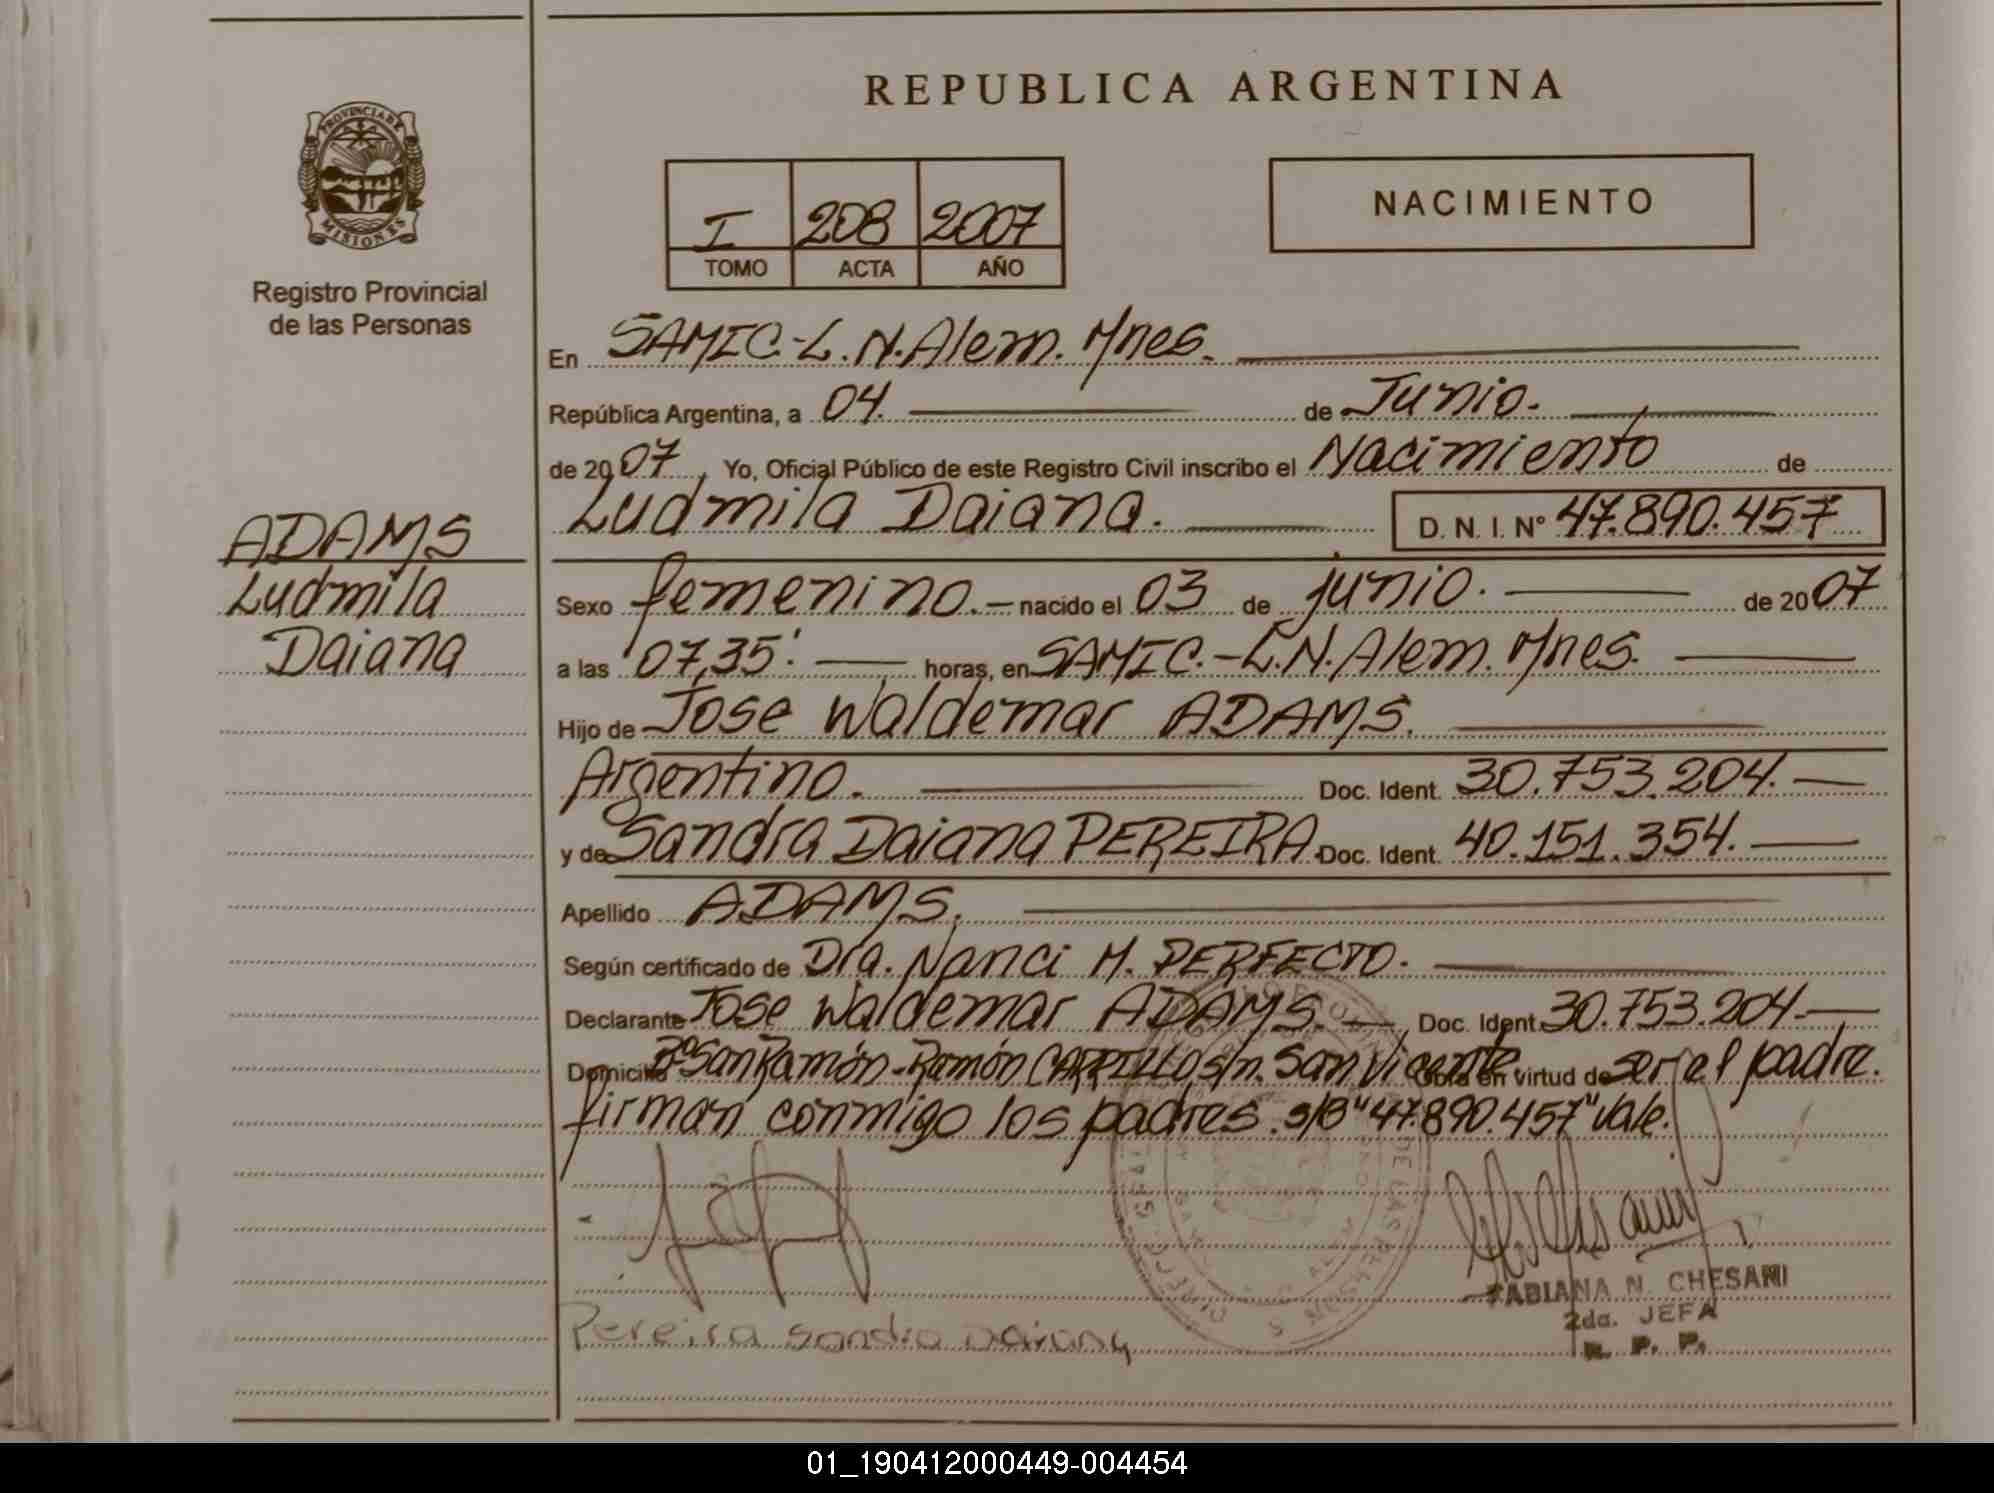 REPUBLICA ARGENTINA
PROVINCIA DE
MISIONES
Registro Provincial
de las Personas
I 208 2007
TOMO ACTA AÑO
NACIMIENTO
En SAMIC.-L.N.Alem. Mnes.
República Argentina, a 04. de Junio.
de 2007, Yo, Oficial Público de este Registro Civil inscribo el Nacimiento de
Ludmila Daiana. D. N. I. N° 47.890.457
ADAMS
Ludmila
Daiana
Sexo femenino.- nacido el 03 de junio. de 2007
a las 07,35'. horas, en SAMIC.-L.N.Alem. Mnes.
Hijo de Jose Waldemar ADAMS.
Argentino. Doc. Ident. 30.753.204.
y de Sandra Daiana PEREIRA. Doc. Ident. 40.151.354.
Apellido ADAMS.
Según certificado de Dra. Nanci M. PERFECTO.
Declarante Jose Waldemar ADAMS. Doc. Ident. 30.753.204.
Domicilio Bº San Ramón-Ramón CARRILLO s/n. San Vicente Obra en virtud de ser el padre.
firman conmigo los padres. s/B "47.890.457" Vale.
Pereira Sandra Daiana
FABIANA N. CHESANI
2da. JEFA
R. P. P.
01_190412000449-004454